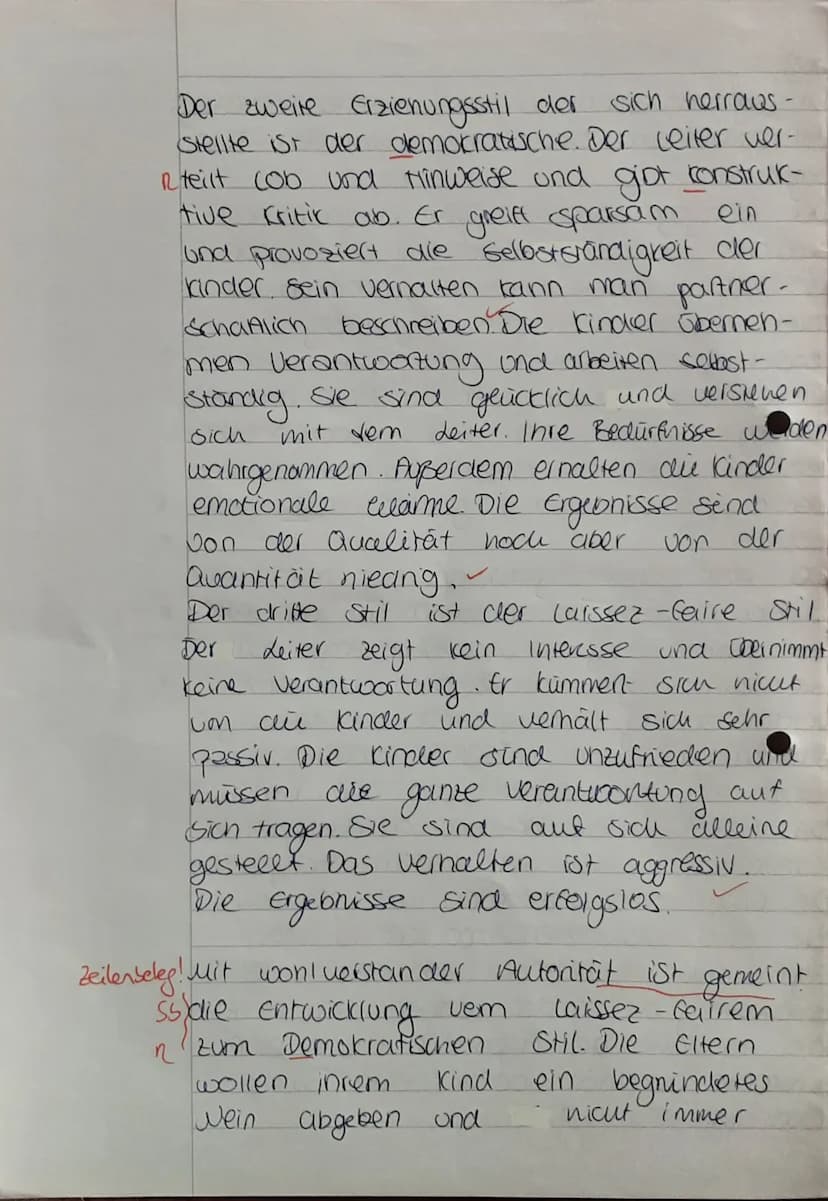 Der zweite Erziehungsstil der sich herraus-
stellte ist der demokratische. Der Leiter ver-
n teilt Lob und Hinweise und gibt konstruk-
tive Kritik ab. Er greift sparsam ein
und provoziert die Selbstständigkeit der
Kinder. Sein Verhalten kann man partner-
schaftlich beschreiben. Die Kinder überneh-
men Verantwortung und arbeiten selbst-
ständig. Sie sind glücklich und verstehen
sich mit dem Leiter. Ihre Bedürfnisse werden
wahrgenommen. Außerdem erhalten die Kinder
emotionale Wärme. Die Ergebnisse sind
von der Qualität hoch aber von der
Quantität niedrig.
Der dritte Stil ist der Laissez-faire Stil
Der Leiter zeigt kein Interesse und übernimmt
keine Verantwortung. Er kümmert sich nicht
um die Kinder und verhält sich sehr
passiv. Die Kinder sind unzufrieden und
müssen die ganze Verantwortung auf
sich tragen. Sie sind auf sich alleine
gestellt. Das Verhalten ist aggressiv.
Die Ergebnisse sind erfolgslos.
Zeilenbeleg! Mit wohlverstandener Autorität ist gemeint
SB die Entwicklung vom Laissez-fairem
n zum Demokratischen Stil. Die Eltern
wollen ihrem Kind ein begründetes
Nein abgeben und nicht immer